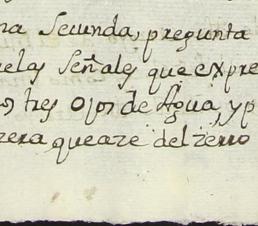 na Secunda, pregunta
elas Señales que expre
os, tres Ojos de Agua, y p
rera que aze del zerro